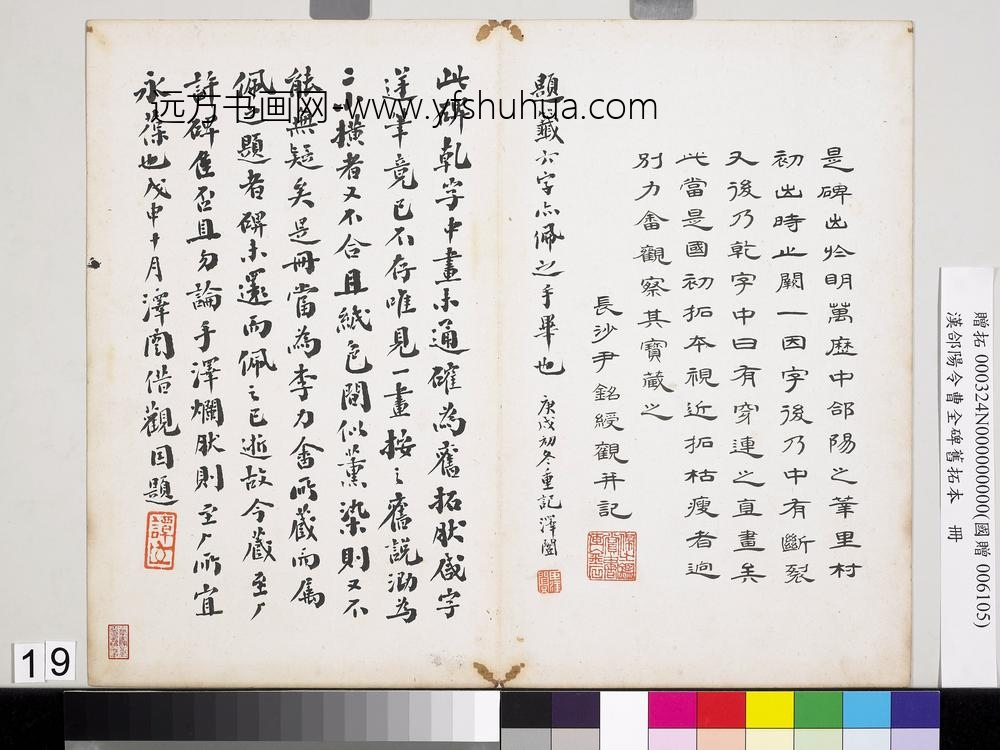 是碑出於明萬曆中郃陽之莘里村
初出時止闕一因字後乃中有斷裂
又後乃乾字中日有穿連之直畫矣
此當是國初拓本視近拓枯瘦者迥
別力畬觀察其寶藏之
長沙尹銘綬觀并記
題籤六字亦佩之手畢也
庚戌初冬重記澤闓
此碑乾字中畫未通確為舊拓肰咸字
詳筆竟已不存唯見一畫按之舊說泐為
二小橫者又不合且紙色間似薰染則又不
能無疑矣是冊當為李力畬所藏而屬
佩之題者碑未還而佩之已逝故今藏至厂
許碑隹否且勿論手澤爛肰則至厂所宜
永葆也戊申十月澤闓借觀因題
远方书画网-www.yfshuhua.com
贈拓 000324N000000000(國贈 006105)
漢郃陽令曹全碑舊拓本 冊
19